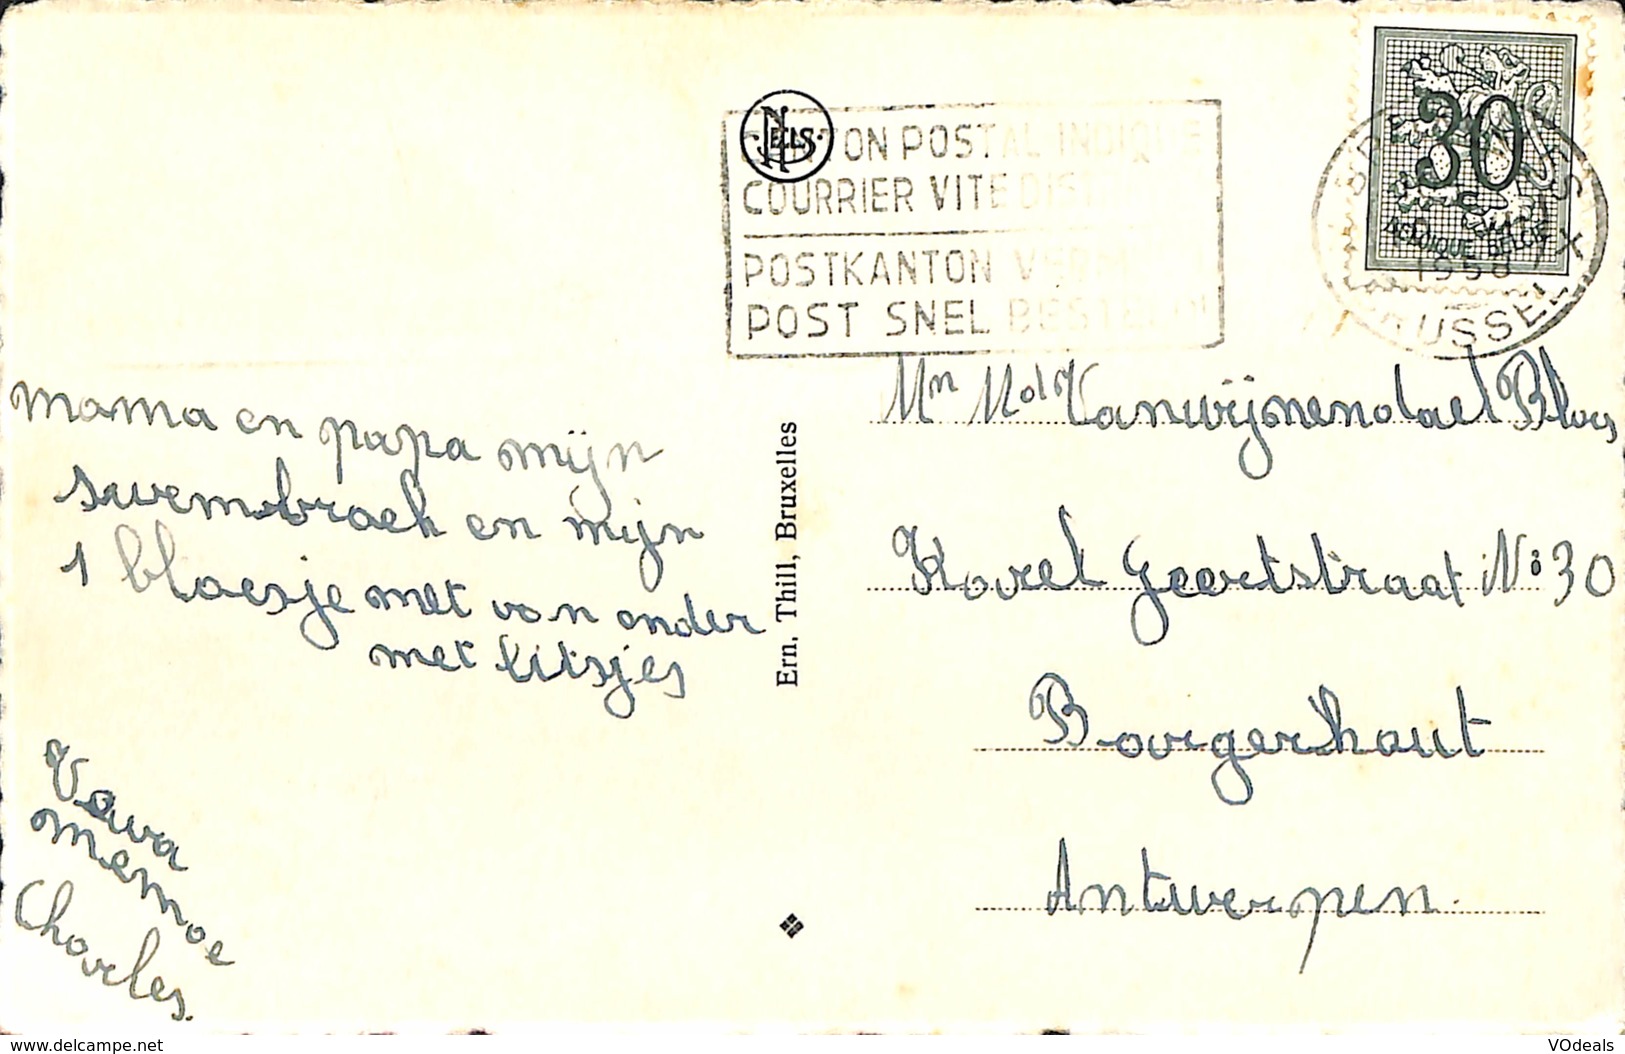 NELS
TON POSTAL INDIQUE
COURRIER VITE DIST
POSTKANTON VERM
POST SNEL BESTELD
30
BELGIQUE-BELGIE
1958
BRUSSEL X
mama en papa mijn
swembroek en mijn
1 bloesje met van onder
met litsjes
Vava
memoe
Charles.
Ern. Thill, Bruxelles
Mn Md Vanwijnendael Bloes
Karel Geertstraat N: 30
Borgerhout
Antwerpen.
www.delcampe.net
VOdeals